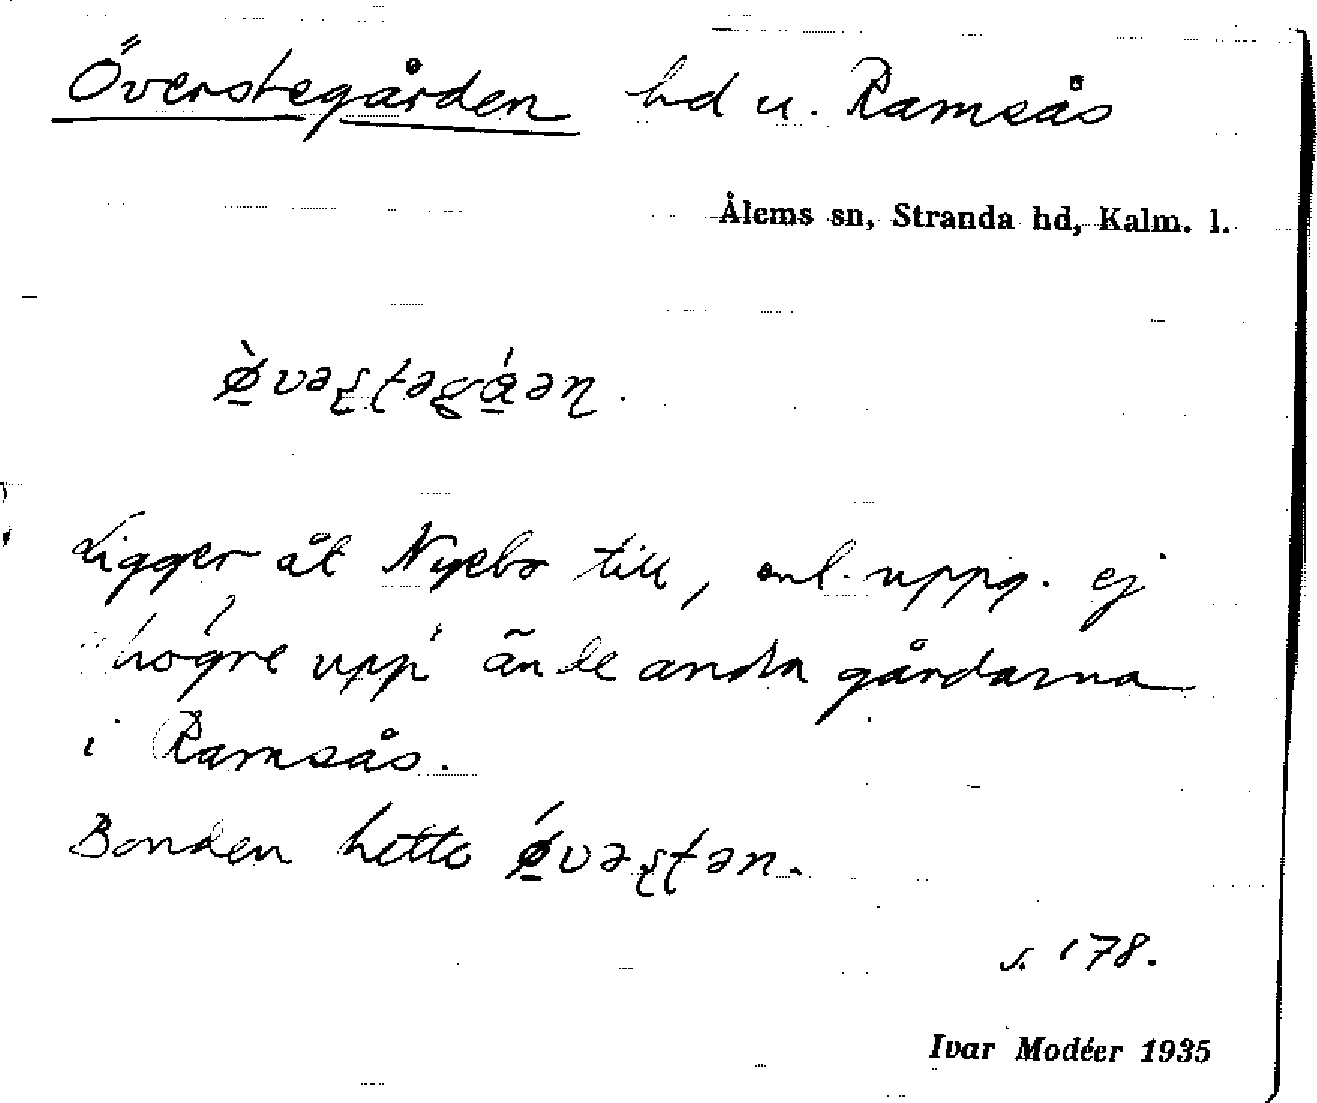 Överstegården hd u. Ramsås
Ålems sn, Stranda hd, Kalm. l.
ø̀vəʂʈəgáəɳ.
Ligger åt Nyebo till, enl. uppg. ej
"högre upp" än de andra gårdarna
i Ramsås.
Bonden hette ǿvəʂʈən.
s. 178.
Ivar Modéer 1935